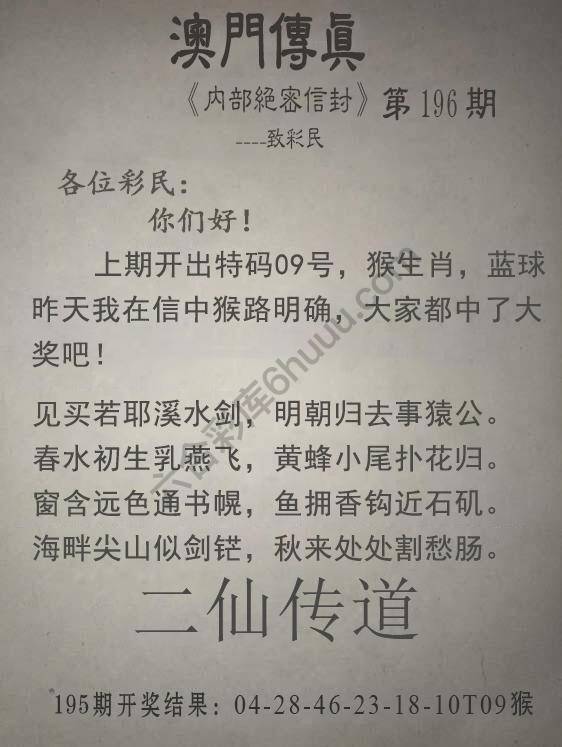 澳門傳真
《内部絕密信封》第196期
----致彩民
各位彩民：
你们好！
上期开出特码09号，猴生肖，蓝球
昨天我在信中猴路明确，大家都中了大
奖吧！
见买若耶溪水剑，明朝归去事猿公。
春水初生乳燕飞，黄蜂小尾扑花归。
窗含远色通书幌，鱼拥香钩近石矶。
海畔尖山似剑铓，秋来处处割愁肠。
二仙传道
195期开奖结果：04-28-46-23-18-10T09猴
六合彩库6huuu.com